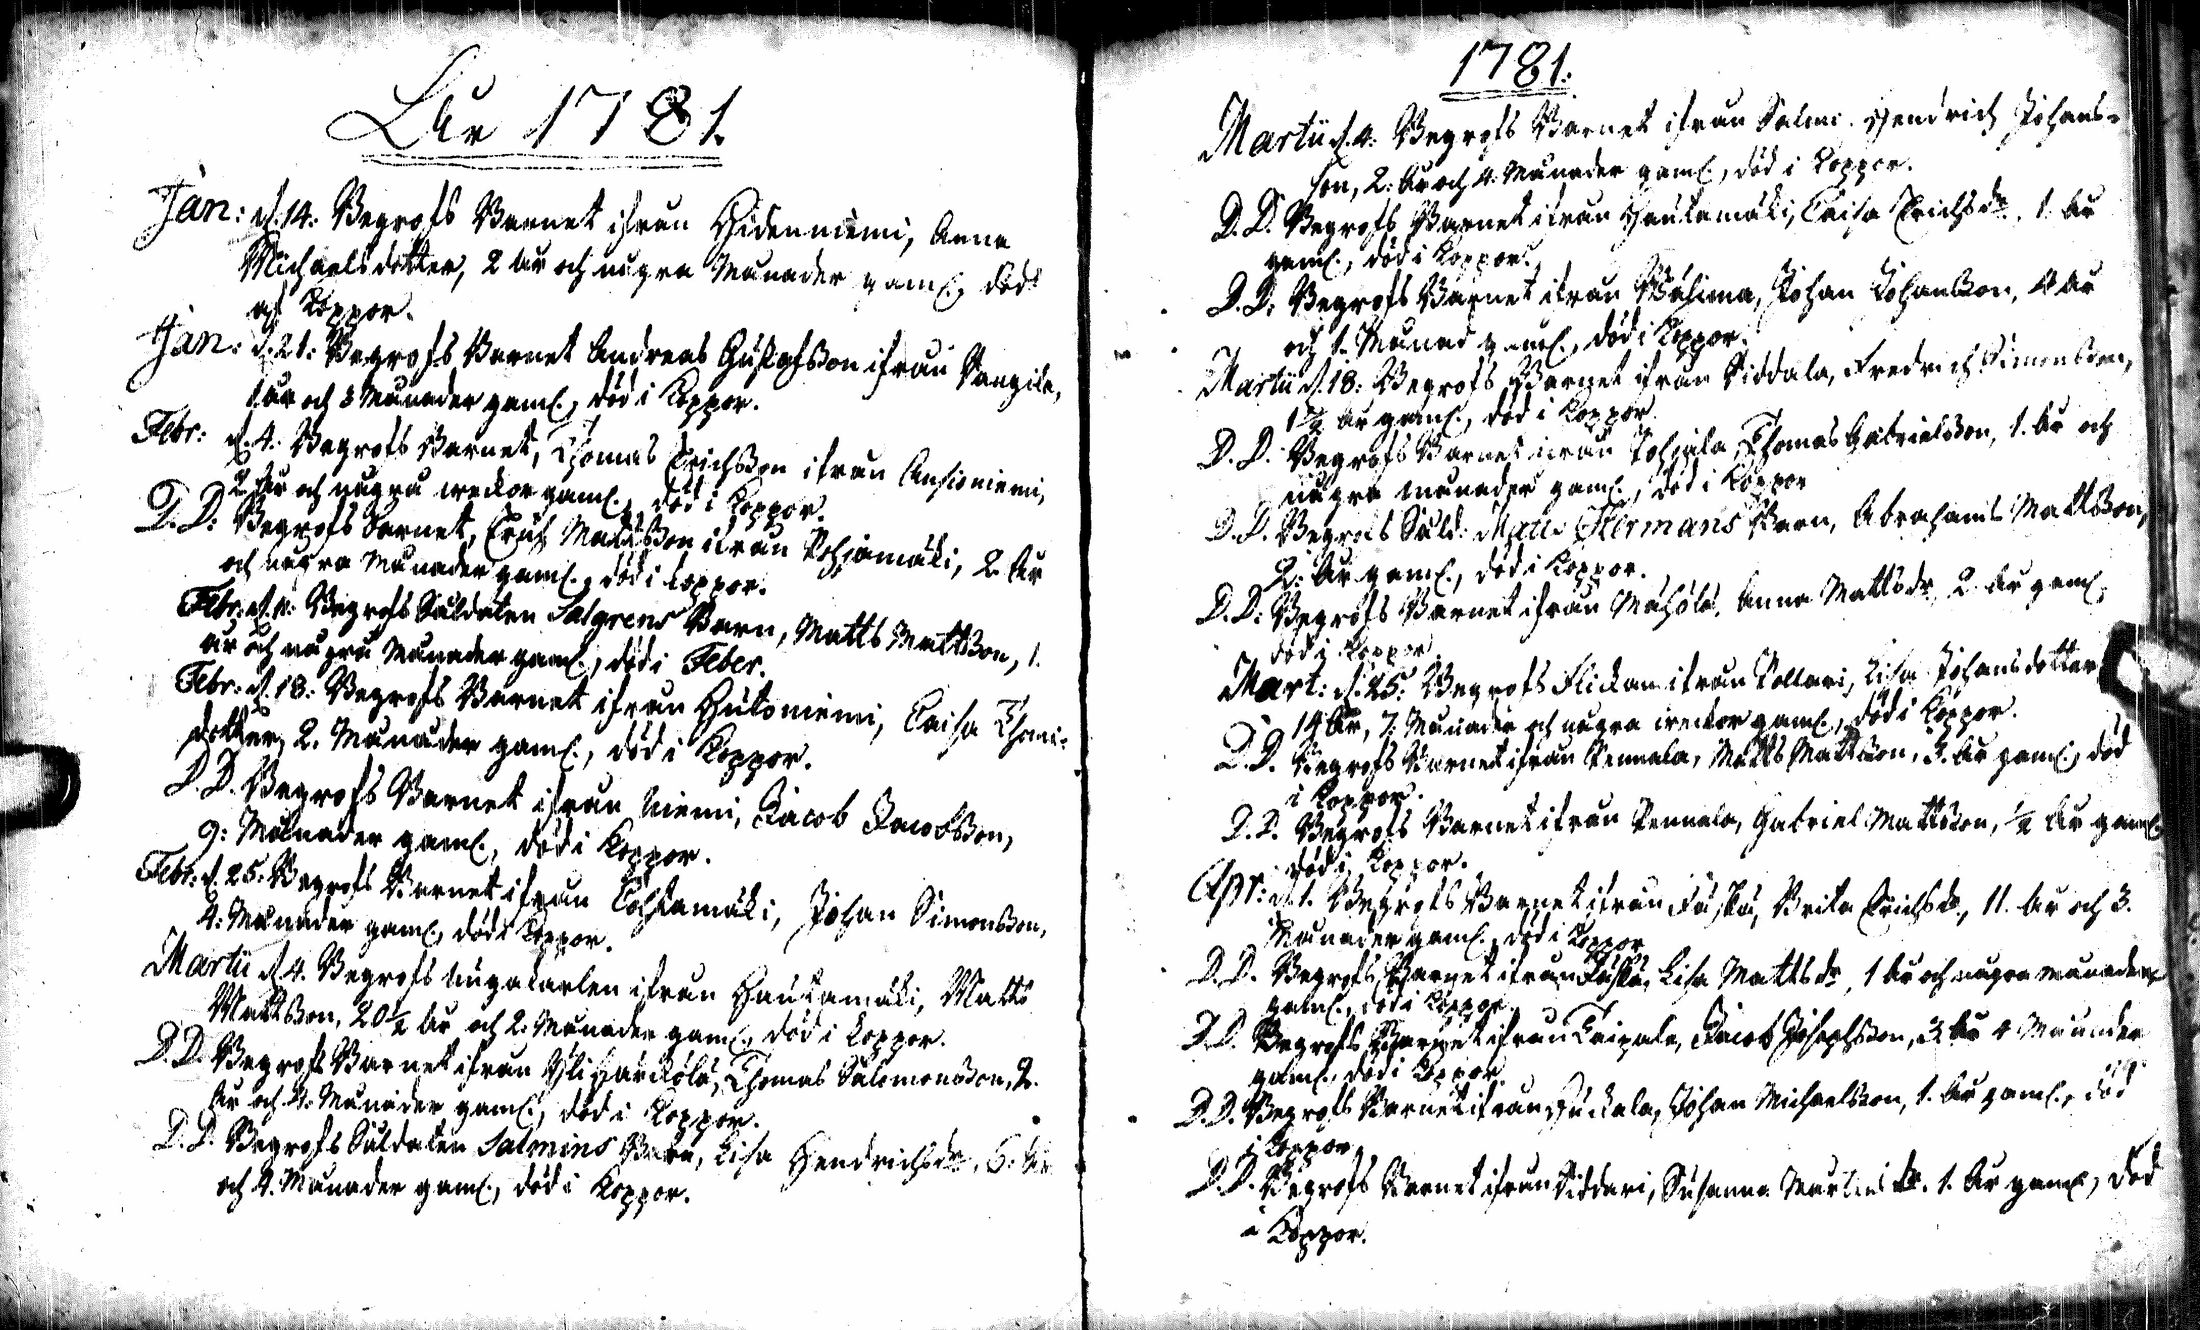 Åhr 1781.
Jan: d. 14: Begrofs Barnet ifrån Hidenniemi, Anna
Michaelsdotter, 2 år och några Månader gaml., död
af Koppor.
Jan: d. 21: Begrofs Barnet Andreas Gustafsson ifrån
1 år och 3 Månader gaml., död i Koppor.
Febr: d. 4. Begrofs Barnet, Thomas Erichsson ifrån Ansioniemi,
2 år och några weckor gaml., död i Koppor.
D. D: Begrofs Barnet, Erich Mattsson ifrån Pohjamäki, 2 år
och några Månader gaml., död i koppor.
Febr: d. 11: Begrofs Såldaten Salgrens Barn, Matts Mattsson, 1.
år och några Månader gaml., död i Feber.
Febr: d. 18: Begrofs Barnet ifrån Hutoniemi, Caisa Thomæ-
dotter, 2. Månader gaml., död i Koppor.
D. D. Begrofs Barnet ifrån Niemi, Jacob Jacobsson,
9: Månader gaml., död i Koppor.
Febr: d. 25. Begrofs Barnet ifrån Johan Simonsson,
4: Månader gaml., död i Koppor.
Martii d. 4. Begrofs Ungakarlen ifrån Hautamäki, Matts
Mattsson, 20½ år och 2. Månader gaml., död i koppor.
D. D. Begrofs Barnet ifrån Thomas Salomonsson, 2.
år och 4. Månader gaml., död i Koppor.
D. D. Begrofs Såldaten Salmins Barn, Lisa Hendrichsdr, 6. år
och 4. Månader gaml., död i Koppor.
1781.
Martii d. 4. Begrofs Barnet ifrån Salmi. Hendrich Johans-
son, 2: år och 4. Månader gaml., död i Koppor.
D. D. Begrofs Barnet ifrån Hautamäki, Caisa Erichsdr. 1. år
gaml., död i Koppor.
D. D: Begrofs Barnet ifrån Johan Johansson, 4 år
och 1. Månad gaml., död i Koppor.
Martii d. 18: Begrofs Barnet ifrån Siddala, Fredrich Simonsson,
1 år gaml., död i Koppor.
D. D. Begrofs Barnet ifrån Pohjala, Thomas Gabrielsson, 1. år och
några månader gaml., död i Koppor
D. D. Begrofs Såld: Matts Hermans Barn, Abraham Mattsson,
2: år gaml., död i Koppor.
D. D: Begrofs Barnet ifrån Anna Mattsdr, 2. år gaml.
död i Koppor.
Mart: d. 25. Begrofs Flickan ifrån Pollari, Lisa Johansdotter
14 år, 7. Månader och några weckor gaml., död i Koppor.
D. D. Begrofs Barnet ifrån Pennala, Matts Mattsson, 3. år gaml., död
i Koppor.
D. D. Begrofs Barnet ifrån Pennala, Gabriel Mattsson, ½ år gaml.
död i Koppor.
Apr: d. 1. Begrofs Barnet ifrån Brita Erichsdr, 11. år och 3.
Månader gaml., död i Koppor
D. D. Begrofs Barnet ifrån Lisa Mattsdr, 1 år och någon månader
gaml., död i Koppor
D. D. Begrofs Barnet ifrån Taipale, Jacob Josephsson, 3 år 4 Månader
gaml., död i Koppor.
D. D. Begrofs Barnet ifrån Johan Michaelsson, 1. år gaml., död
i Koppor
D. D. Begrofs Barnet ifrån Siddari, Susanna Martinsdr. 1. år gaml., död
i Koppor.